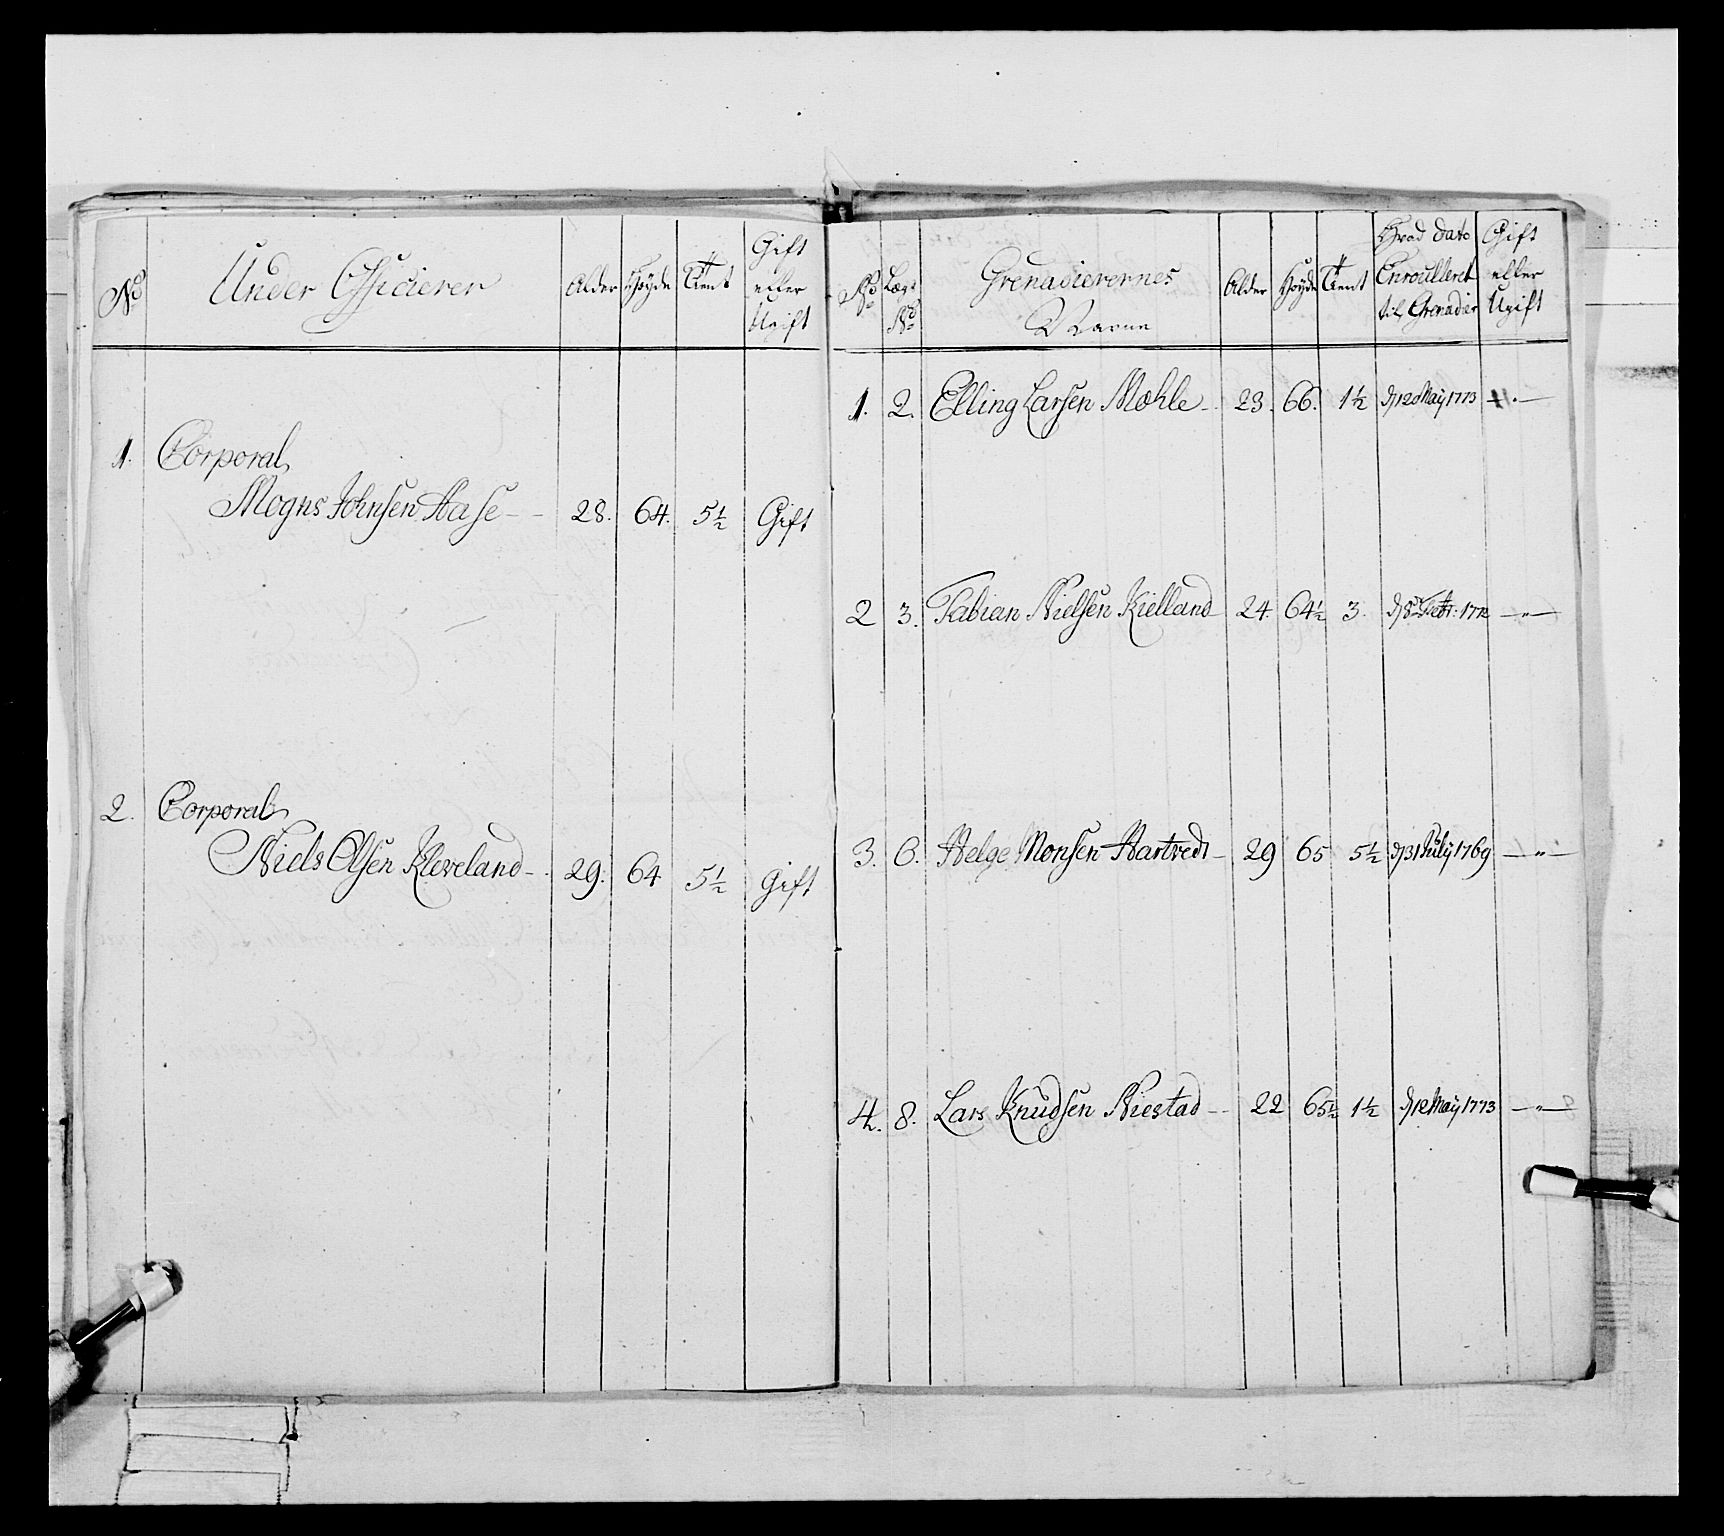 No
Under Officierer
Alder
Høyde
Tient
Gift
eller
Ugift
1. Corporal
Mogns Johnsen Aase - - 28. 64. 5½ Gift
2. Corporal
Niels Olsen Kleveland - - 29. 64 5½ Gift
No
Lægs
No
Grenadierernes
Navne
Alder
Høyde
Tient
Hvad Dato
Enroulleret
til Grenadier
Gift
eller
Ugift
1. 2. Elling Larsen Mæhle - 23. 66. 1½ d 12 Maij 1773
2 3. Fabian Nielsen Kielland 24. 64½ 3. 1772 — " —
3. 6. Helge Monsen Hartvedt - 29 65 5½ d 31 Julij 1769 — " —
4. 8. Lars Knudsen Niestad - - 22 65½ 1½ d 12 Maij 1773 — " —